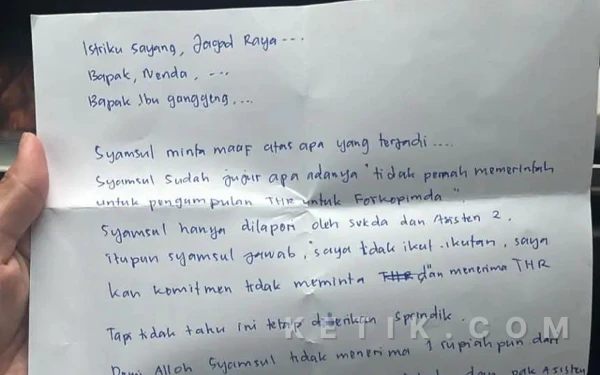 Istriku sayang, Jagad Raya ---
Bapak, Nenda, ---
Bapak Ibu ganggeng, ...
Syamsul minta maaf atas apa yang terjadi ....
Syamsul sudah jujur apa adanya "tidak pernah memerintah
untuk pengumpulan THR untuk Forkopimda".
Syamsul hanya dilapori oleh sekda dan Asisten 2.
itupun syamsul jawab, "saya tidak ikut-ikutan, saya
kan komitmen tidak meminta THR dan menerima THR"
Tapi tidak tahu ini tetap diterikan sprindik.
KETIK.COM
Demi Alloh Syamsul tidak menerima 1 rupiah pun dari
dan pak Asisten